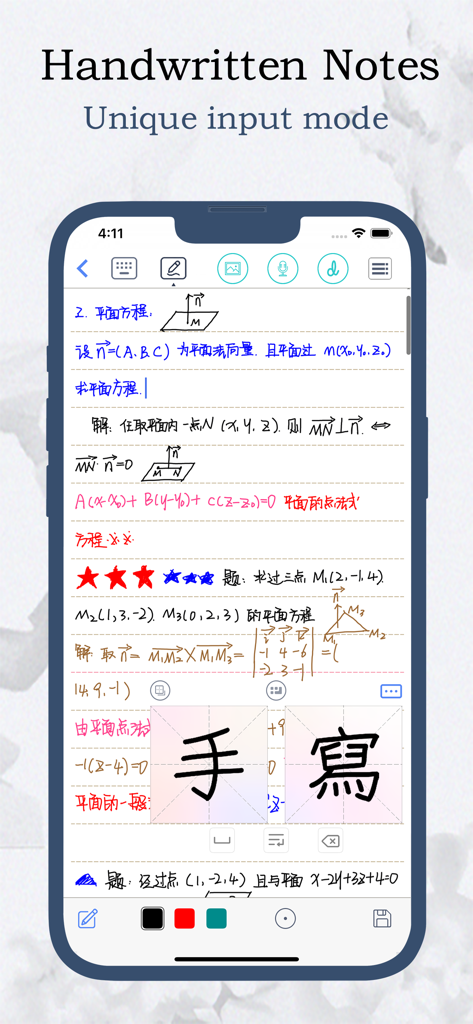 Handwritten Notes
Unique input mode
4:11
2. 平面方程.
n
M
设 n=(A,B,C) 为平面法向量. 且平面过 M(x₀,y₀,z₀)
求平面方程.
解: 任取平面内一点N (x,y,z). 则 MN⊥n. ⇔
MN·n=0
n
M N
A(x-x₀)+B(y-y₀)+C(z-z₀)=0 平面的点法式
方程.
题: 求过三点 M₁(2,-1,4).
M₂(1,3,-2). M₃(0,2,3) 的平面方程
n
M₃
M₁
M₂
解: 取 n= M₁M₂×M₁M₃=
-1 4 -6
-2 3 -1
=(
14,9,-1)
由平面点法
+9
手
寫
-1(z-4)=0
0
平面的一般
题: 经过点 (1,-2,4) 且与平面 x-2y+3z+4=0